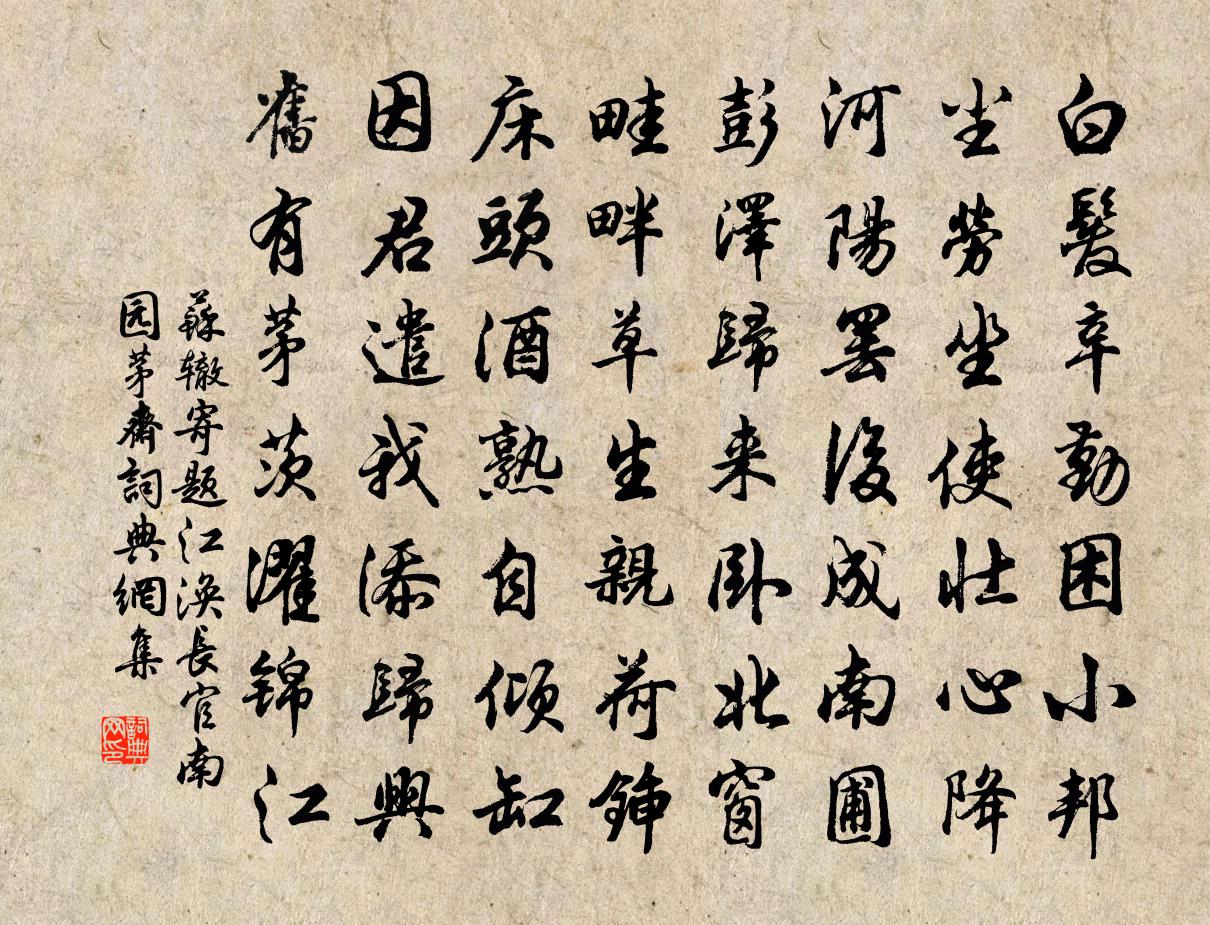 白髮辛勤困小邦
坐勞坐使壯心降
河陽罷後成南圃
彭澤歸来卧北窗
畦畔草生親荷鍤
床頭酒熟自傾缸
因君遣我添歸興
舊有茅茨濯錦江
蘇辙寄题江涣長官南
园茅齋詞典網集
詞典
网印